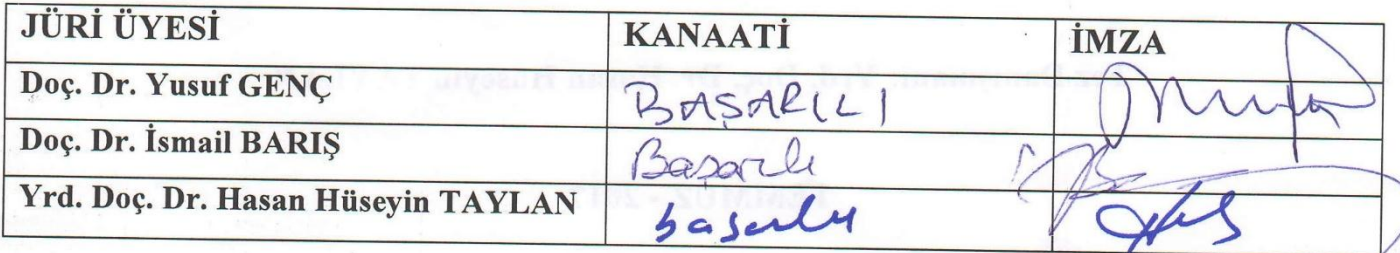 JÜRİ ÜYESİ KANAATİ İMZA
Doç. Dr. Yusuf GENÇ BAŞARILI
Doç. Dr. İsmail BARIŞ Başarılı
Yrd. Doç. Dr. Hasan Hüseyin TAYLAN başarılı